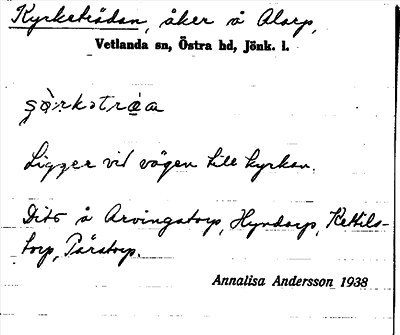 Kyrketrädan, åker å Alarp,
Vetlanda sn, Östra hd, Jönk. l.
Ligger vid vägen till kyrkan.
Dito å Arvingatorp, Hyndarp, Kettils-
torp, Påratorp.
Annalisa Andersson 1938